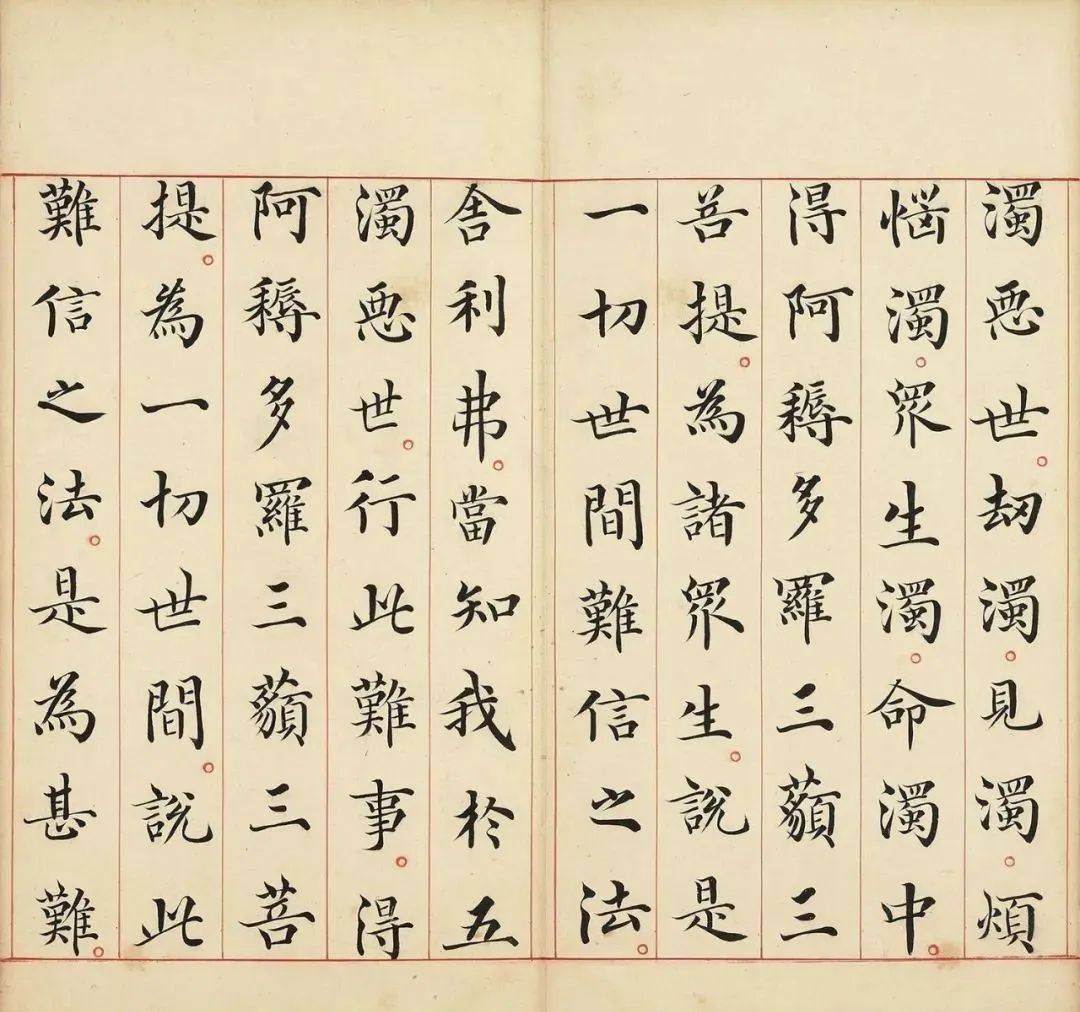 濁惡世。劫濁。見濁。煩
惱濁。眾生濁。命濁中。
得阿耨多羅三藐三
菩提。為諸眾生。說是
一切世間難信之法。
舍利弗。當知我於五
濁惡世。行此難事。得
阿耨多羅三藐三菩
提。為一切世間。說此
難信之法。是為甚難。